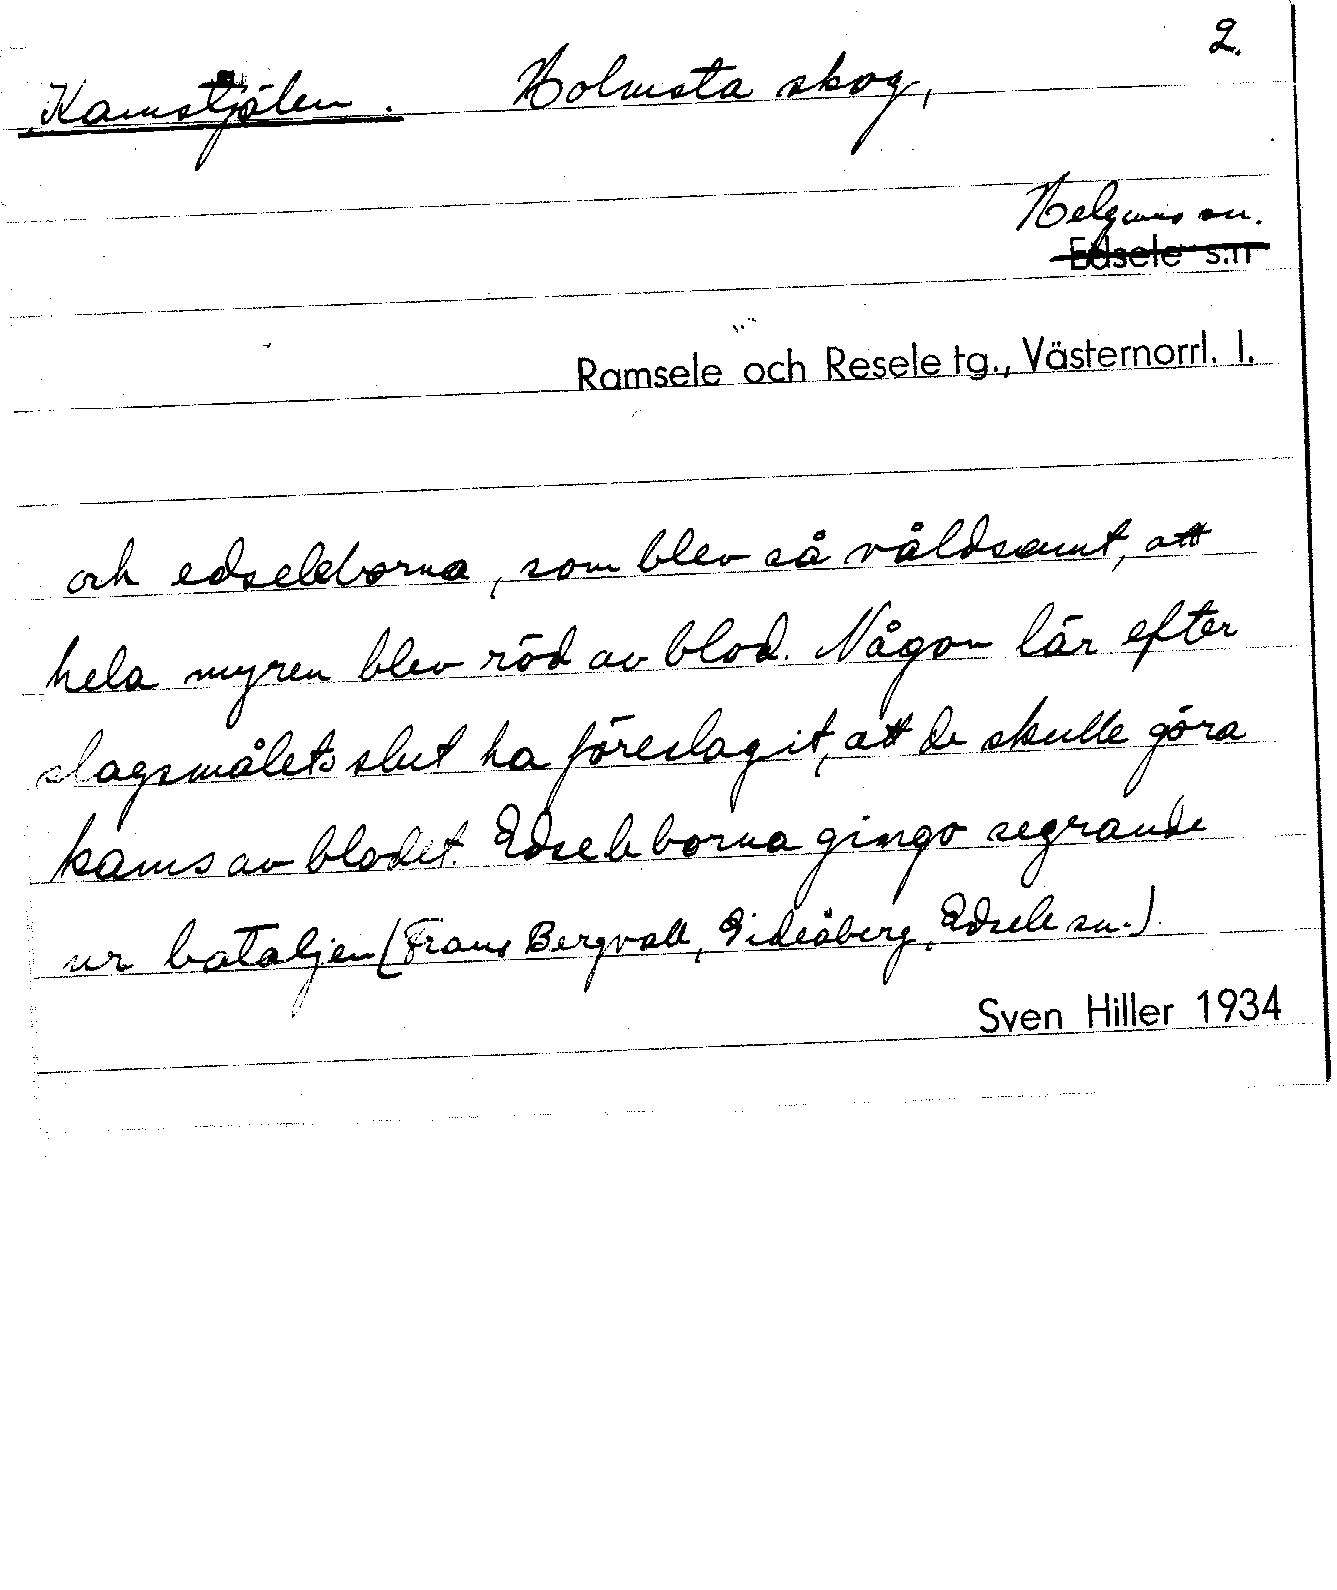 2.
Kamstjälen. Holmsta skog,
Helgums sn.
Edsele s:n
Ramsele och Resele tg., Västernorrl. l.
och edseleborna, som blev så våldsamt, att
hela myren blev röd av blod. Någon lär efter
slagsmålets slut ha föreslagit, att de skulle göra
kams av blodet. Edseleborna gingo segrande
ur bataljen (Frans Bergvall, Gideåberg, Edsele sn.).
Sven Hiller 1934